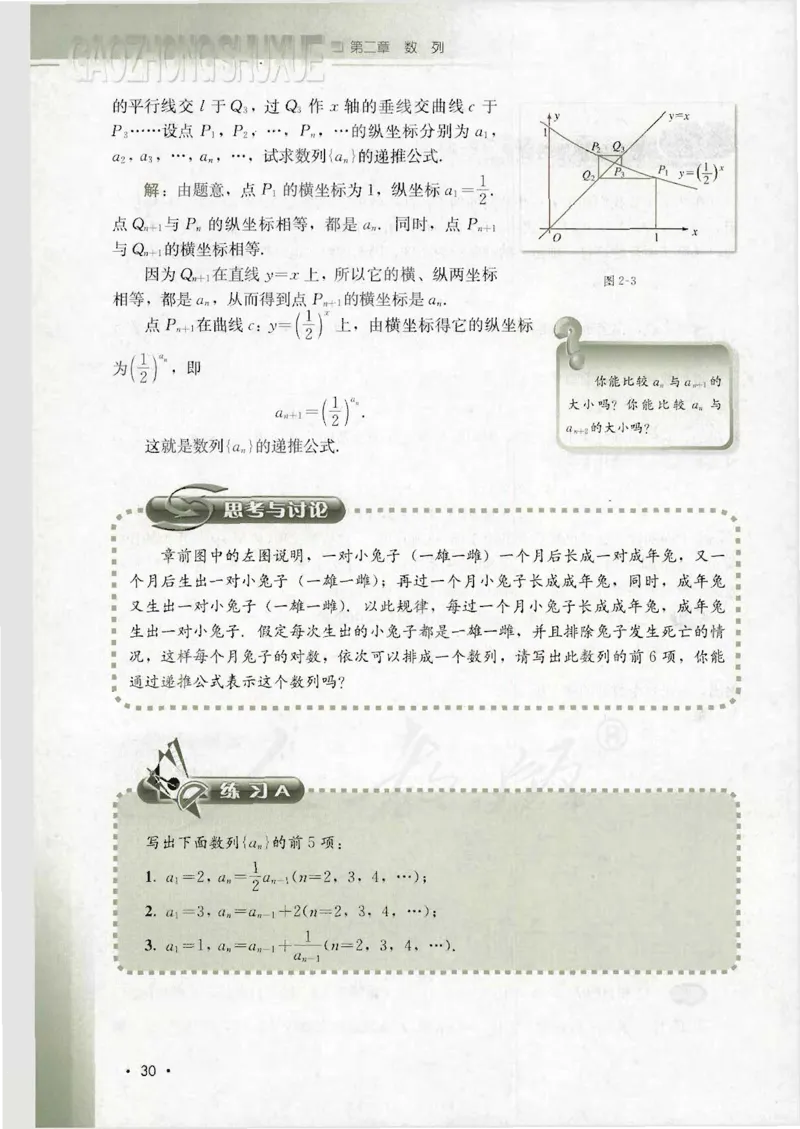 GAOZHONGSHUXUE 第二章 数 列
的平行线交 l 于 Q₃,过 Q₃ 作 x 轴的垂线交曲线 c 于
P₃……设点 P₁,P₂,…,Pₙ,…的纵坐标分别为 a₁,
a₂,a₃,…,aₙ,…,试求数列{aₙ}的递推公式.
解:由题意,点 P₁ 的横坐标为 1,纵坐标 a₁=1/2.
点 Qₙ₊₁与 Pₙ 的纵坐标相等,都是 aₙ. 同时,点 Pₙ₊₁
与 Qₙ₊₁的横坐标相等.
因为 Qₙ₊₁在直线 y=x 上,所以它的横、纵两坐标
相等,都是 aₙ,从而得到点 Pₙ₊₁的横坐标是 aₙ.
点 Pₙ₊₁在曲线 c:y=(1/2)^x 上,由横坐标得它的纵坐标
为(1/2)^aₙ,即
aₙ₊₁=(1/2)^aₙ.
这就是数列{aₙ}的递推公式.
y
y=x
1
P₂ Q₃
Q₂ P₃ P₁ y=(1/2)^x
O 1 x
图 2-3
你能比较 aₙ 与 aₙ₊₁ 的
大小吗?你能比较 aₙ 与
aₙ₊₂的大小吗?
思考与讨论
章前图中的左图说明,一对小兔子(一雄一雌)一个月后长成一对成年兔,又一
个月后生出一对小兔子(一雄一雌);再过一个月小兔子长成成年兔,同时,成年兔
又生出一对小兔子(一雄一雌). 以此规律,每过一个月小兔子长成成年兔,成年兔
生出一对小兔子. 假定每次生出的小兔子都是一雄一雌,并且排除兔子发生死亡的情
况,这样每个月兔子的对数,依次可以排成一个数列,请写出此数列的前 6 项,你能
通过递推公式表示这个数列吗?
练习A
写出下面数列{aₙ}的前 5 项:
1. a₁=2,aₙ=1/2 aₙ₋₁(n=2,3,4,…);
2. a₁=3,aₙ=aₙ₋₁+2(n=2,3,4,…);
3. a₁=1,aₙ=aₙ₋₁+1/aₙ₋₁(n=2,3,4,…).
· 30 ·